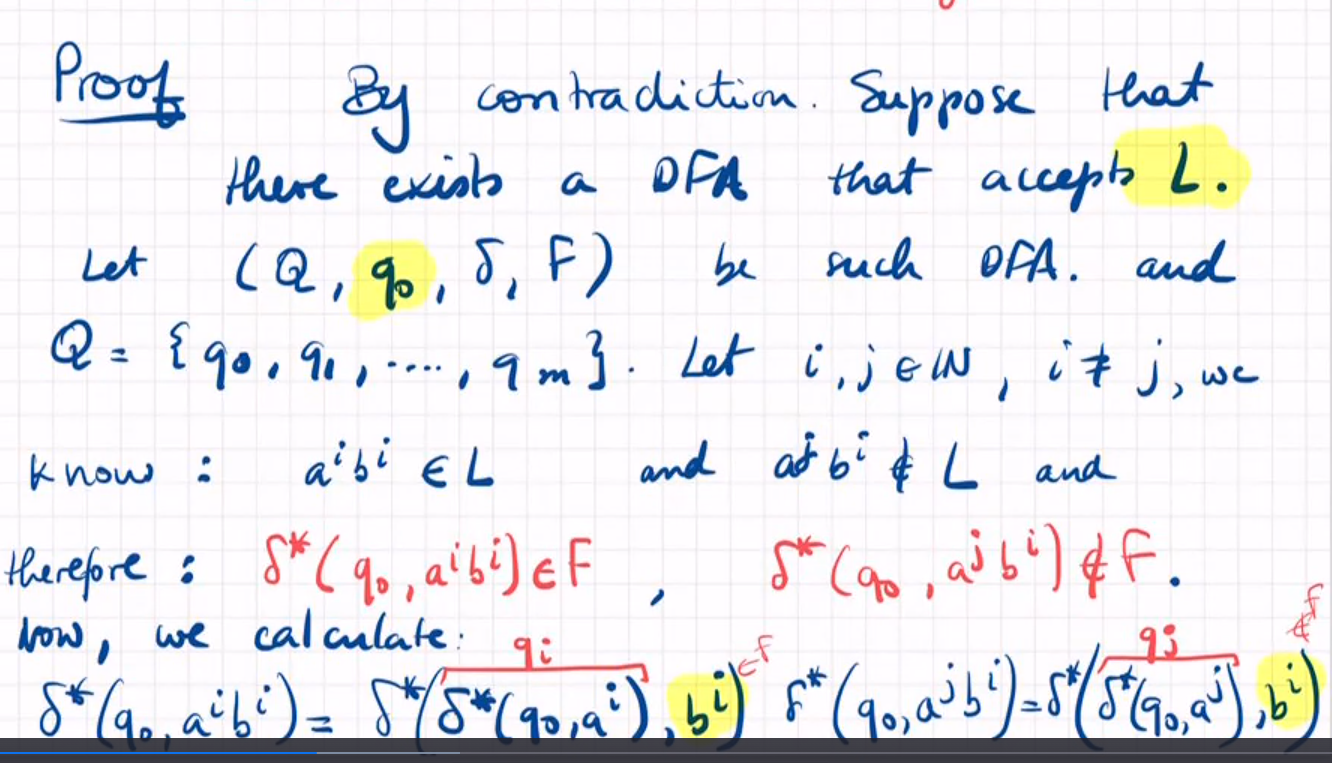 Proof By contradiction. Suppose that
there exists a DFA that accepts L.
Let (Q, q₀, δ, F) be such DFA. and
Q = {q₀, q₁, ...., qₘ}. Let i, j ∈ ℕ, i ≠ j, we
know : aⁱbⁱ ∈ L and aʲbⁱ ∉ L and
therefore : δ*(q₀, aⁱbⁱ) ∈ F , δ*(q₀, aʲbⁱ) ∉ F.
now, we calculate:
qᵢ qⱼ
δ*(q₀, aⁱbⁱ) = δ*(δ*(q₀, aⁱ), bⁱ) ∈ F δ*(q₀, aʲbⁱ) = δ*(δ*(q₀, aʲ), bⁱ) ∉ F